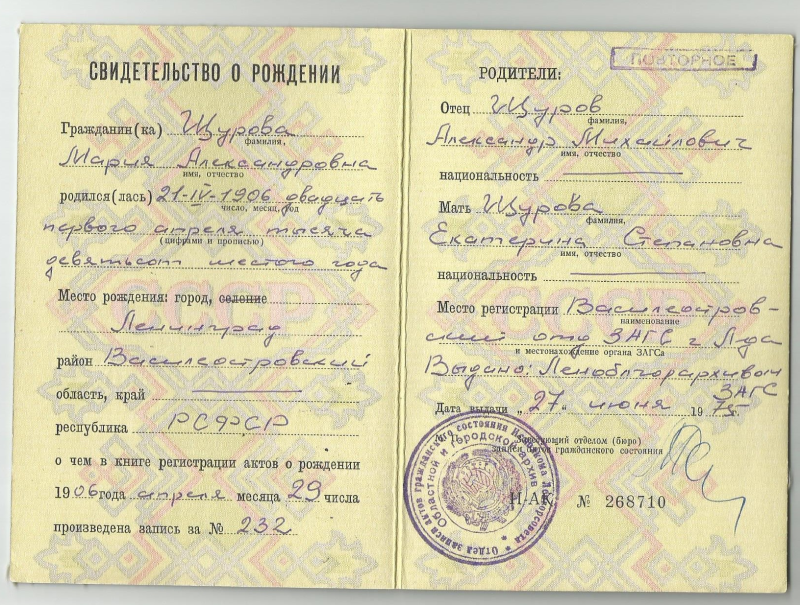 СВИДЕТЕЛЬСТВО О РОЖДЕНИИ
Гражданин(ка) Щурова
фамилия,
Мария Александровна
имя, отчество
родился(лась) 21-IV-1906 двадцать
число, месяц, год
первого апреля тысяча
(цифрами и прописью)
девятьсот шестого года
Место рождения: город, селение
Ленинград
район Василеостровский
область, край
республика РСФСР
о чем в книге регистрации актов о рождении
1906 года апреля месяца 29 числа
произведена запись за № 232
ПОВТОРНОЕ
РОДИТЕЛИ:
Отец Щуров
фамилия,
Александр Михайлович
имя, отчество
национальность
Мать Щурова
фамилия,
Екатерина Степановна
имя, отчество
национальность
Место регистрации Василеостров-
наименование
ский отд ЗАГС г Л-да
и местонахождение органа ЗАГСа
Выдано: Леноблгорархивом
ЗАГС
Дата выдачи „27„ июня 1975г.
Заведующий отделом (бюро)
записи актов гражданского состояния
II-АК № 268710
Отдел записи актов гражданского состояния
Областной и городской архив